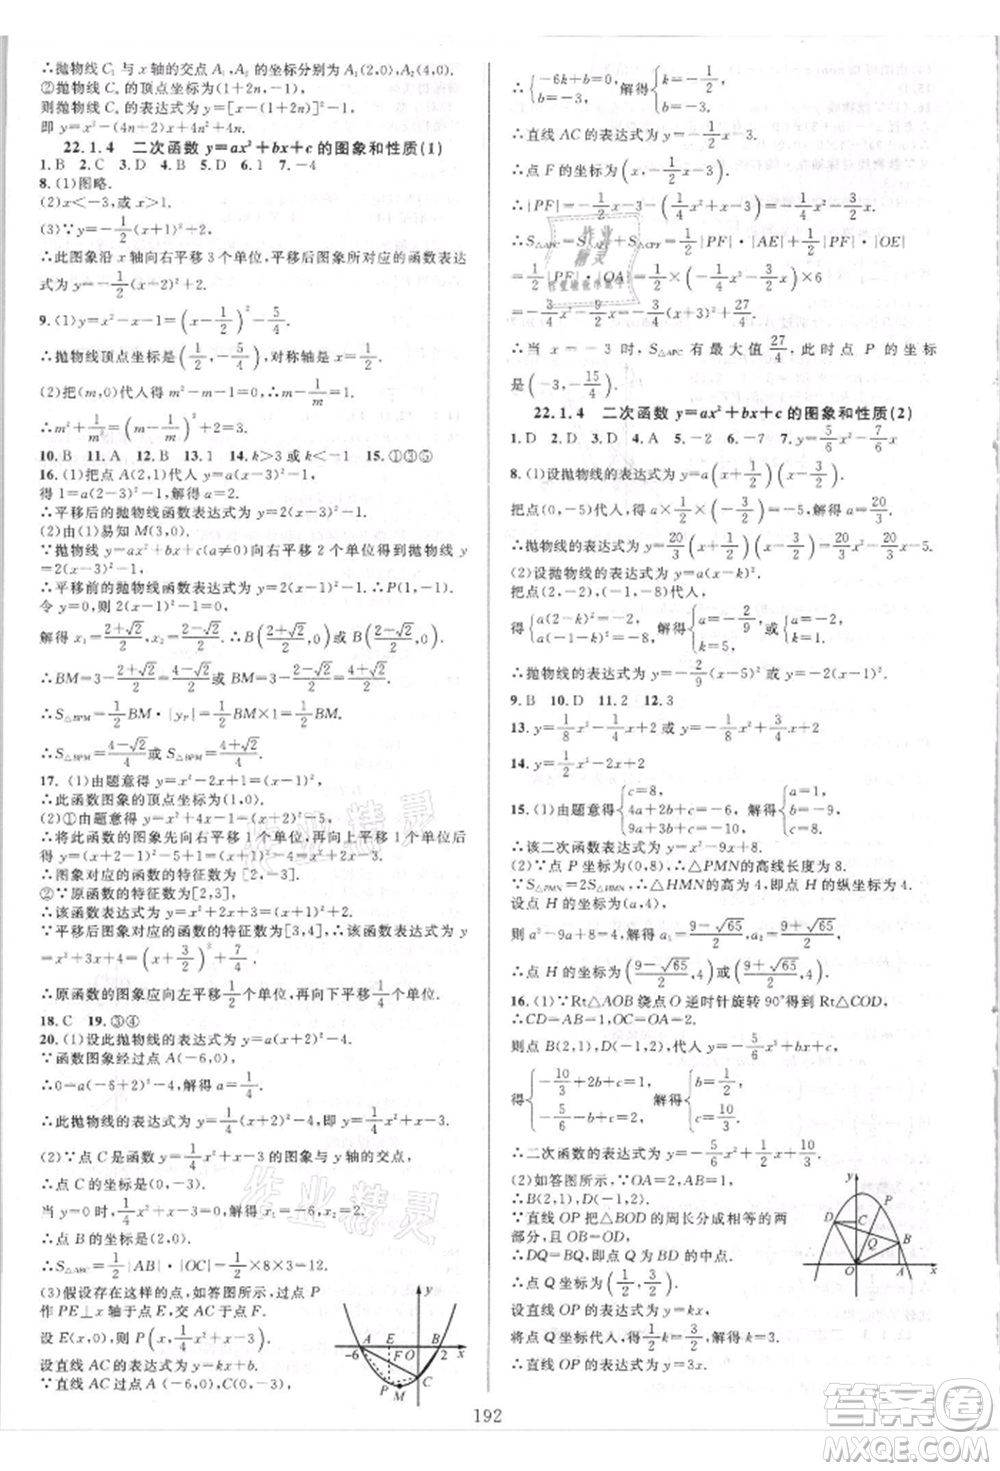 ∴抛物线 C₁ 与 x 轴的交点 A₁,A₂ 的坐标分别为 A₁(2,0),A₂(4,0).
②抛物线 Cₙ 的顶点坐标为(1+2n,-1).
则抛物线 Cₙ 的表达式为 y=[x-(1+2n)]²-1.
即 y=x²-(4n+2)x+4n²+4n.
22.1.4 二次函数 y=ax²+bx+c 的图象和性质(1)
1.B 2.C 3.D 4.B 5.D 6.1 7.-4
8.(1)图略.
(2)x<-3,或 x>1.
(3)∵y=-1/2x²-x+3/2=-1/2(x+1)²+2.
∴此图象沿 x 轴向右平移 3 个单位,平移后图象所对应的函数表达
式为 y=-1/2(x-2)²+2.
9.(1)y=x²-x-1=(x-1/2)²-5/4.
∴抛物线顶点坐标是(1/2,-5/4),对称轴是 x=1/2.
(2)把(m,0)代入得 m²-m-1=0. ∴m-1/m=1.
∴m²+1/m²=(m-1/m)²+2=3.
10.B 11.A 12.B 13.1 14.k>3 15.①③⑤
16.(1)把点 A(2,1)代入 y=a(x-3)²-1.
得 1=a(2-3)²-1,解得 a=2.
∴平移后的抛物线函数表达式为 y=2(x-3)²-1.
(2)由(1)易知 M(3,0).
∵抛物线 y=ax²+bx+c(a≠0)向右平移 2 个单位得到抛物线 y=2(x-3)²-1.
∴平移前的抛物线函数表达式为 y=2(x-1)²-1. ∴P(1,-1).
令 y=0,得 2(x-1)²-1=0.
解得 x₁=(2+√2)/2,x₂=(2-√2)/2. ∴B((2+√2)/2,0)或 B((2-√2)/2,0).
∴BM=3-(2+√2)/2=(4-√2)/2 或 BM=3-(2-√2)/2=(4+√2)/2.
∴S△BPM=1/2BM·|yP|=1/2BM×1=1/2BM.
∴S△BPM=(4-√2)/4 或 S△BPM=(4+√2)/4.
17.(1)由题意得 y=x²-2x+1=(x-1)².
∴此函数图象的顶点坐标为(1,0).
(2)①由题意得 y=x²+4x-1=(x+2)²-5.
∴将此函数的图象先向右平移 1 个单位,再向上平移 1 个单位后
得 y=(x+2-1)²-5+1=(x+1)²-4=x²+2x-3.
∴图象对应的函数的特征数为[2,-3].
②∵原函数的特征数为[2,3],
∴该函数表达式为 y=x²+2x+3=(x+1)²+2.
∵平移后图象对应的函数的特征数为[3,4],∴该函数表达式为
y=x²+3x+4=(x+3/2)²+7/4.
∴原函数的图象应向左平移1/2个单位,再向下平移1/4个单位.
18.C 19.③④
20.(1)设此抛物线的表达式为 y=a(x+2)²-4.
∵函数图象经过点 A(-6,0),
∴0=a(-6+2)²-4,解得 a=1/4.
∴此抛物线的表达式为 y=1/4(x+2)²-4=1/4x²+x-3.
(2)∵点 C 是函数 y=1/4x²+x-3 的图象与 y 轴的交点,
∴点 C 的坐标是(0,-3).
当 y=0 时,有1/4x²+x-3=0,解得 x₁=-6,x₂=2.
∴点 B 的坐标为(2,0).
∴S△ABC=1/2|AB|·|OC|=1/2×8×3=12.
(3)假设存在这样的点,如答图所示,过点 P
作 PE⊥x 轴于点 E,交 AC 于点 F.
设 E(x,0),则 P(x,1/4x²+x-3).
设直线 AC 的表达式为 y=kx+b.
∵直线 AC 过点 A(-6,0),C(0,-3),
y
A E B
-6 F O 2 x
P M C
∴{-6k+b=0, b=-3, 解得{k=-1/2, b=-3.
∴直线 AC 的表达式为 y=-1/2x-3.
∴点 F 的坐标为(x,-1/2x-3).
∴|PF|=-1/2x-3-(1/4x²+x-3)=-1/4x²-3/2x.
∴S△APC=S△APF+S△CPF=1/2|PF|·|AE|+1/2|PF|·|OE|
=1/2|PF|·|OA|=1/2(-1/4x²-3/2x)×6
=-3/4x²-9/2x=-3/4(x+3)²+27/4.
∴当 x=-3 时,S△APC 有最大值27/4,此时点 P 的坐标
是(-3,-15/4).
22.1.4 二次函数 y=ax²+bx+c 的图象和性质(2)
1.D 2.D 3.D 4.A 5.-2 6.-7 7.y=5/6x²-7/6x
8.(1)设抛物线的表达式为 y=a(x+1/2)(x-3/2).
把点(0,-5)代入得 a×1/2×(-3/2)=-5,解得 a=20/3.
∴抛物线的表达式为 y=20/3(x+1/2)(x-3/2)=20/3x²-20/3x-5.
(2)设抛物线的表达式为 y=a(x-k)².
把点(2,-2),(-1,-8)代入,
得{a(2-k)²=-2, a(-1-k)²=-8, 解得{a=-2/9, k=5, 或{a=-2, k=1.
∴抛物线的表达式为 y=-2/9(x-5)² 或 y=-2(x-1)².
9.B 10.D 11.2 12.3
13.y=1/8x²-1/4x+2 或 y=-1/8x²+3/4x+2
14.y=1/2x²+2x
15.(1)由题意得{c=8, 4a+2b+c=-6, 9a+3b+c=-10, 解得{c=8, a=1, b=-9.
∴该二次函数表达式为 y=x²-9x+8.
(2)∵点 P 坐标为(0,8),∴△PMN的高线长度为 8.
∵S△PMN=2S△HMN,∴△HMN的高为 4,即点 H 的纵坐标为 4.
设点 H 的坐标为(a,4),
则 a²-9a+8=4,解得 a₁=(9-√65)/2,a₂=(9+√65)/2.
∴点 H 的坐标为((9-√65)/2,4)或((9+√65)/2,4).
16.(1)∵Rt△AOB绕点 O 逆时针旋转 90°得到 Rt△COD,
∴CD=AB=1,OC=OA=2.
则点 B(2,1),D(-1,2),代入 y=-5/6x²+bx+c,
得{-10/3+2b+c=1, -5/6-b+c=2, 解得{b=1/2, c=10/3.
∴二次函数表达式为 y=-5/6x²+1/2x+10/3.
(2)如答图所示,∵OA=2,AB=1,
∴B(2,1),D(-1,2).
∵直线 OP 把△BOD的周长分成相等的两
部分,且 OB=OD.
∴DQ=BQ,即点 Q 为 BD 的中点.
∴点 Q 坐标为(1/2,3/2).
设直线 OP 的表达式为 y=kx.
将点 Q 坐标代入,得1/2k=3/2,解得 k=3.
∴直线 OP 的表达式为 y=3x.
y
P
D C
Q B
O A x
192
作业精灵
答案圈
MXQE.COM